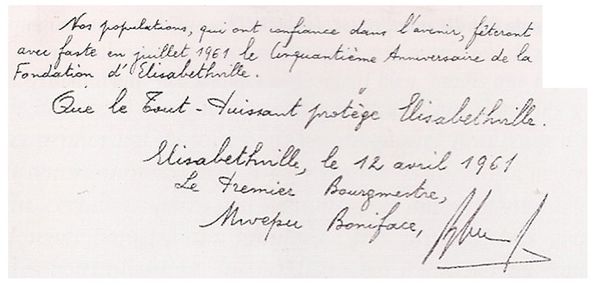 Nos populations, qui ont confiance dans l'avenir, fêteront
avec faste en juillet 1961 le Cinquantième Anniversaire de la
Fondation d'Elisabethville.
Que le Tout-Puissant protège Elisabethville.
Elisabethville, le 12 avril 1961
Le Premier Bourgmestre,
Mwepu Boniface,